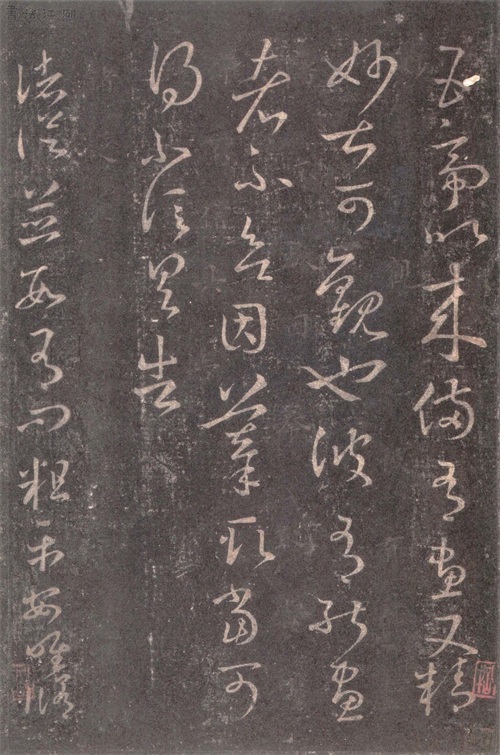 五帝以來備有畫又精
妙甚可觀也彼有能畫
者不欲因摹取當可
得不信具告
諸從並數有問粗平安唯脩